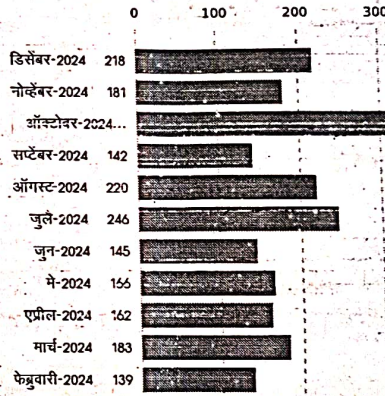 0 100 200 300
डिसेंबर-2024 218
नोव्हेंबर-2024 181
ऑक्टोबर-2024...
सप्टेंबर-2024 142
ऑगस्ट-2024 220
जुलै-2024 246
जुन-2024 145
मे-2024 166
एप्रील-2024 162
मार्च-2024 183
फेब्रुवारी-2024 139